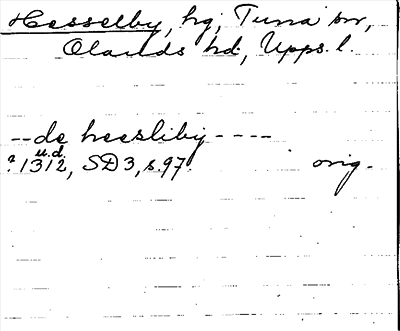 Hesselby, hg, Tuna sn,
Olands hd, Upps. l.
-- de heesliby ----
u.d.
? 1312, SD 3, s. 97. orig.